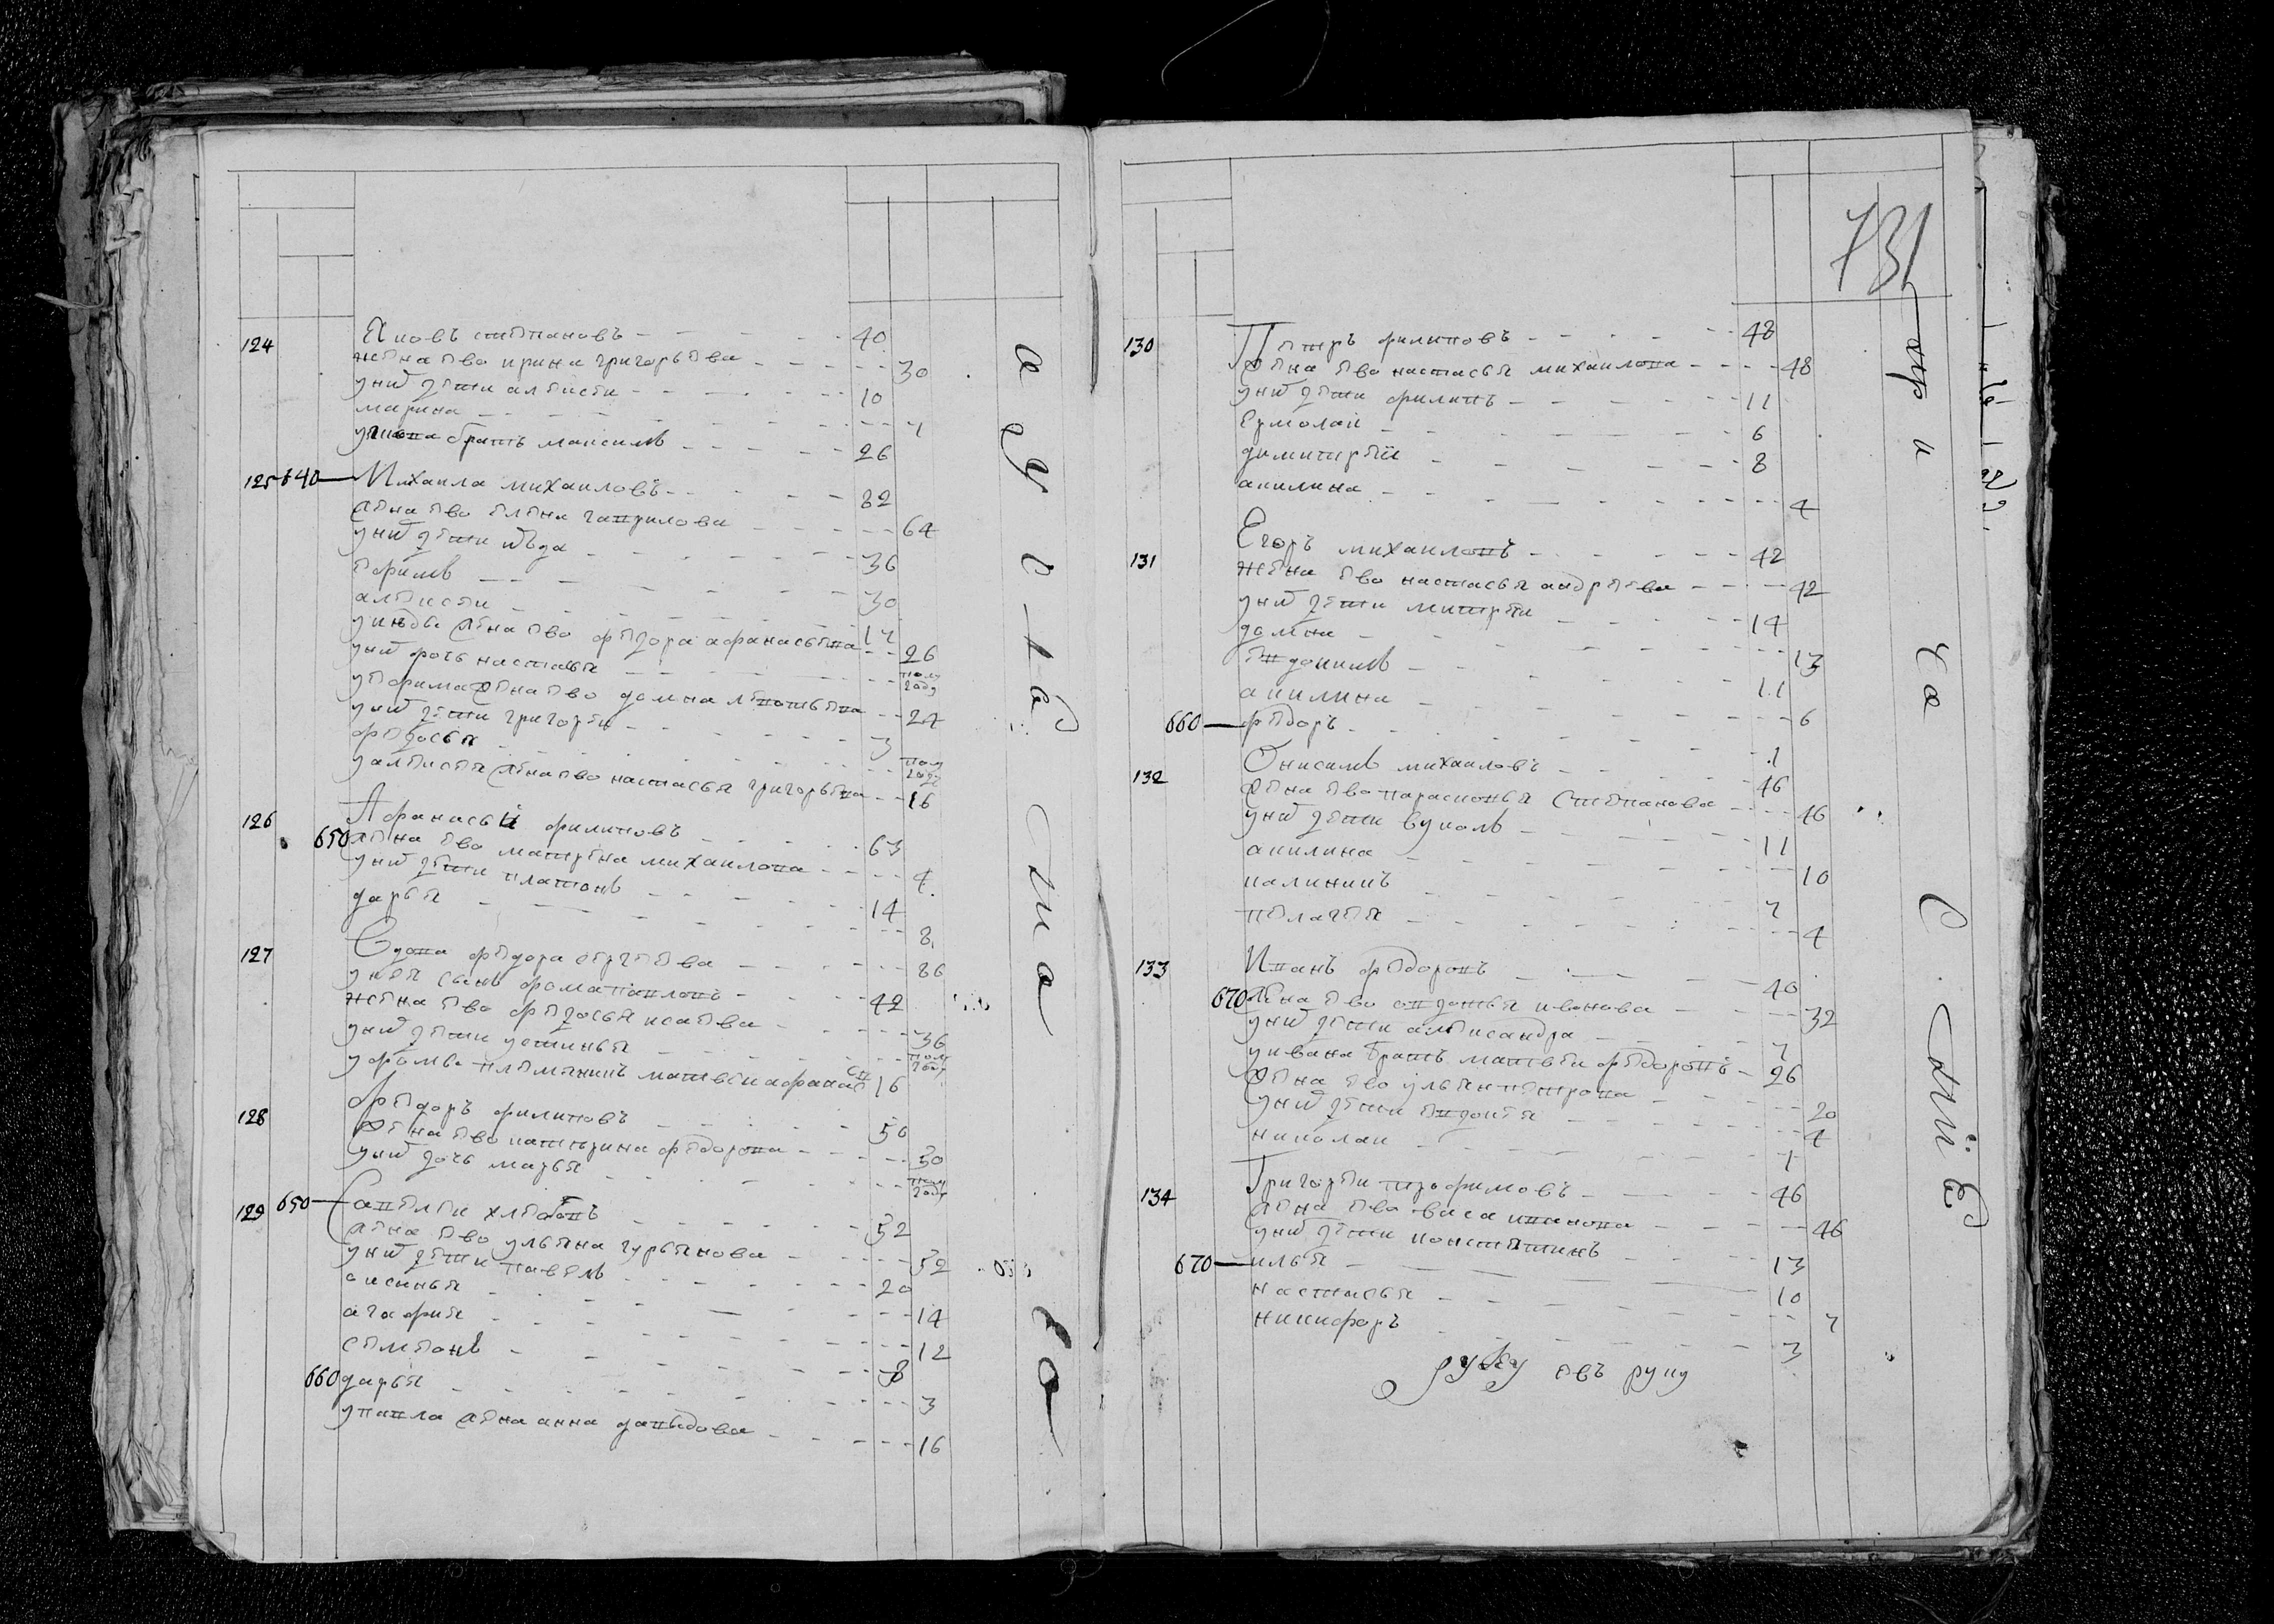 124 Яковъ степановъ 40
жена ево ирина григорьева 30
унихъ дети алексеи 10
марина 7
уякова братъ максимъ 26
125 640 Михаила михаиловъ 82
жена ево елена гаврилова 64
унихъ дети 36
ефимъ 30
алексеи 17
жена ево федора афанасьева 26
унихъ дочь настасья полу году
уефима жена ево домна леонтьева 24
унихъ дети григореи 3
федосья полу году
уалексея жена ево настасья григорьева 16
126 Афанасьй филиповъ 63
650 жена ево матрена михаилова 4
унихъ дети платонъ 14
дарья 8
127 Вдова федора сергеева 86
унея сынъ фома павловъ 42
жена ево федосья исаева 36
унихъ дети устинья полу году
уфомы племянникъ матвеи афанасев 16
128 Федоръ филиповъ 50
жена ево катерина федорова 50
унихъ дочь марья полу году
129 650 Савелеи хлебовъ 52
жена ево ульяна гурьянова 52
унихъ дети павелъ 20
аксинья 14
агафия 12
семенъ 8
660 дарья 3
упавла жена анна давыдова 16
а гу с та
с ти а
ко
731
130 Петръ филиповъ 48
жена ево настасья михаилова 48
унихъ дети филипъ 11
Ермолаи 6
димитреи 8
акилина 4
131 Егоръ михаиловъ 42
жена ево настасья андреева 42
унихъ дети митреи 14
домна 13
евдокимъ 11
акилина 6
660 федоръ 1
132 Онисимъ михаиловъ 46
жена ево парасковья степанова 46
унихъ дети вуколъ 11
акилина 10
калиникъ 7
пелагея 4
133 Иванъ федоровъ 40
670 жена ево овдотья иванова 32
унихъ дети александра 7
уивана братъ матвеи федоровъ 26
жена ево ульян петрова 20
унихъ дети евдокея 4
николаи 1
134 Григореи трофимовъ 46
жена ево васа иванова 46
унихъ дети константинъ 13
670 илья 10
настасья 7
никифоръ 3
руку